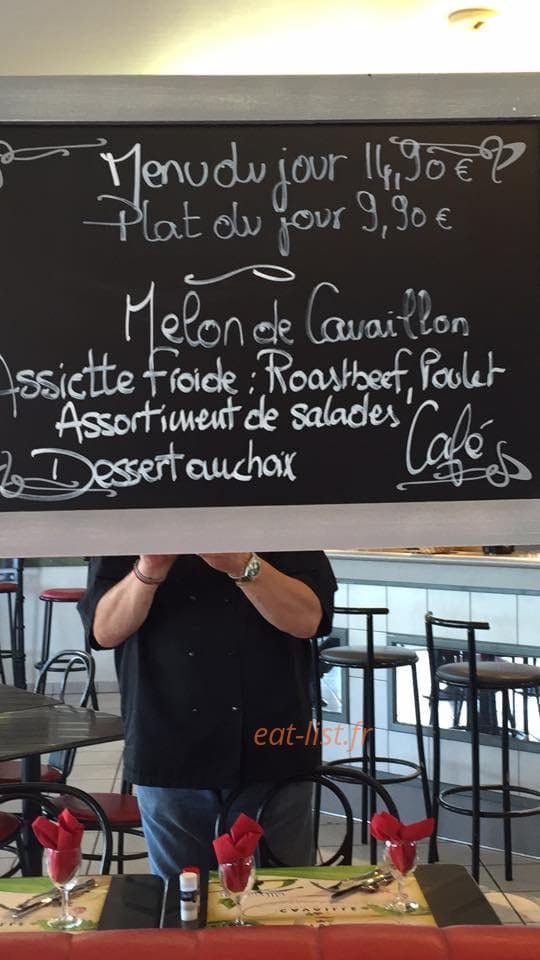 Menu du jour 14,90 €
Plat du jour 9,90 €
Melon de Cavaillon
Assiette froide : Roastbeef, Poulet
Assortiment de salades
Dessert au choix
Café
eat-list.fr